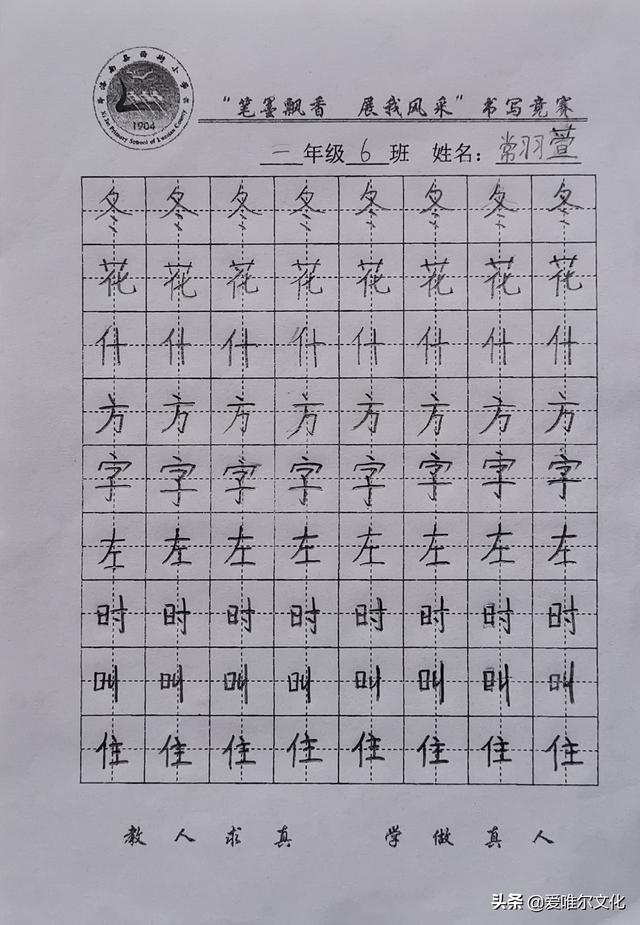 1904
Xi Jie Primary School of Luonan County
"笔墨飘香 展我风采"书写竞赛
一年级6班 姓名：常羽萱
冬冬冬冬冬冬冬冬
花花花花花花花花
什什什什什什什什
方方方方方方方方
字字字字字字字字
左左左左左左左左
时时时时时时时时
叫叫叫叫叫叫叫叫
住住住住住住住住
教人求真 学做真人
头条@爱唯尔文化